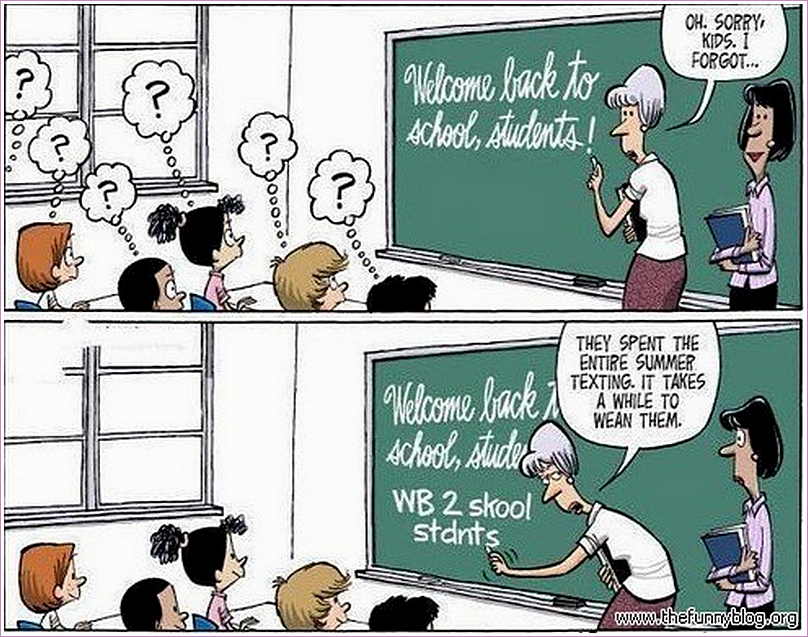 ?
?
?
?
?
?
Welcome back to
school, students!
OH. SORRY,
KIDS. I
FORGOT...
Welcome back t
school, stude
WB 2 skool
stdnts
THEY SPENT THE
ENTIRE SUMMER
TEXTING. IT TAKES
A WHILE TO
WEAN THEM.
www.thefunnyblog.org